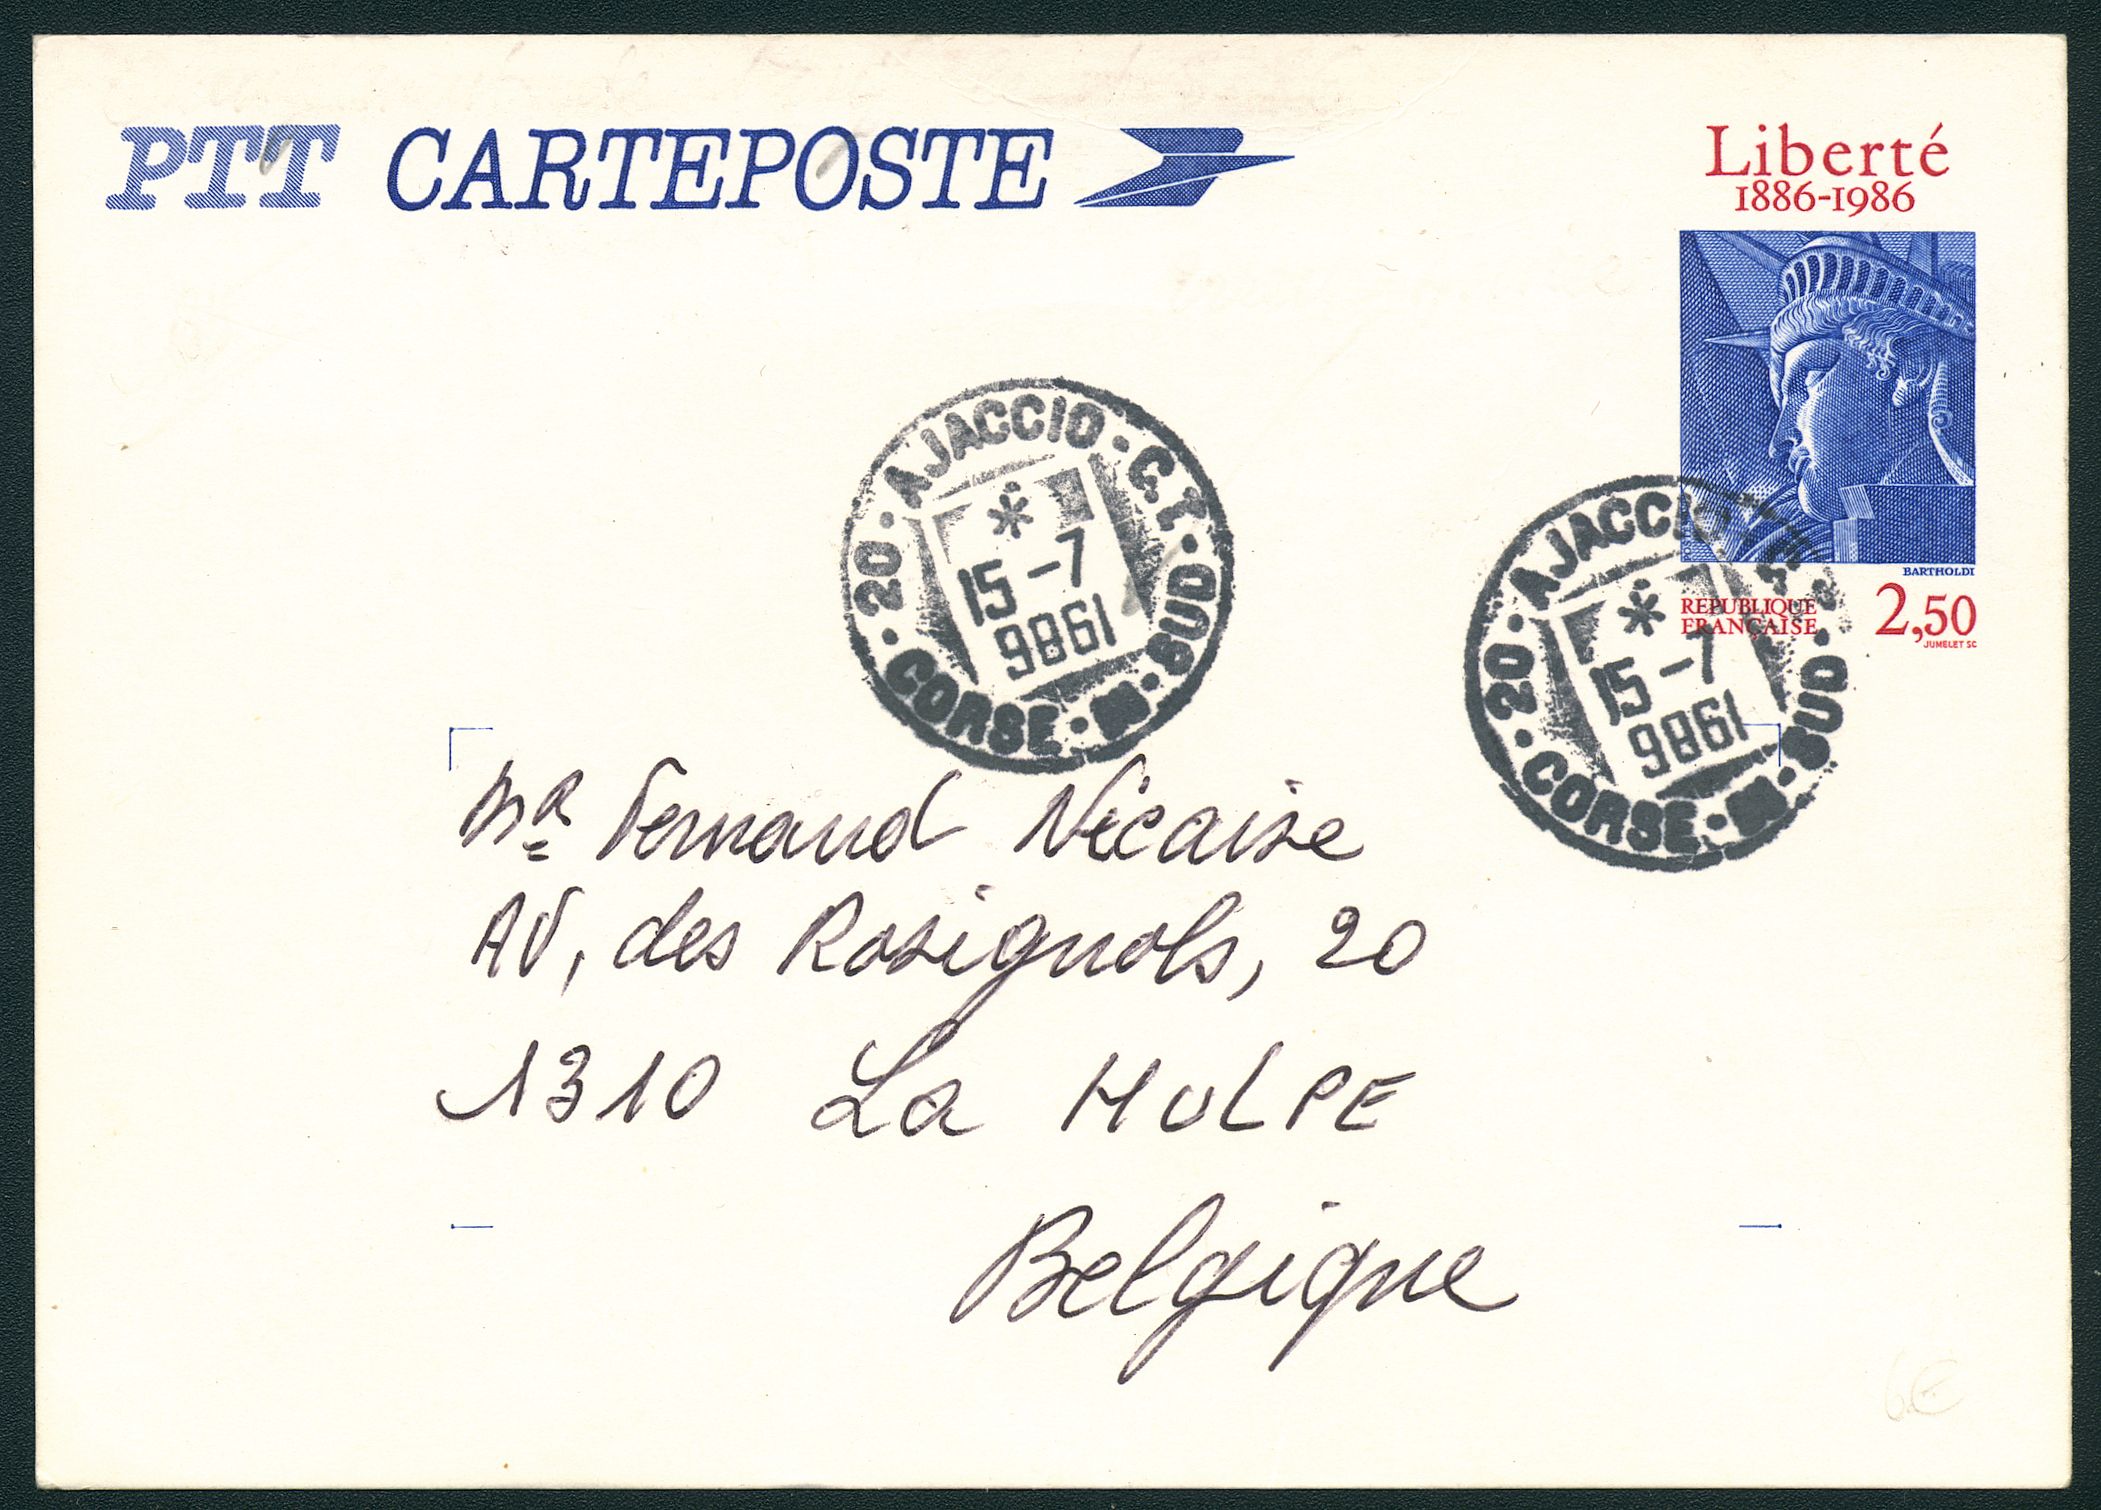 PTT CARTEPOSTE
Liberté
1886-1986
BARTHOLDI
REPUBLIQUE
FRANÇAISE
2,50
JUMELET SC
20 · AJACCIO · C.T. · SUD · M · CORSE ·
*
15 -7
1986
20 · AJACCIO · C. · SUD · M · CORSE ·
*
15 -7
1986
Mr Fernand Nécaise
AV, des Rosignols, 20
1310 La HULPE
Belgique
6€